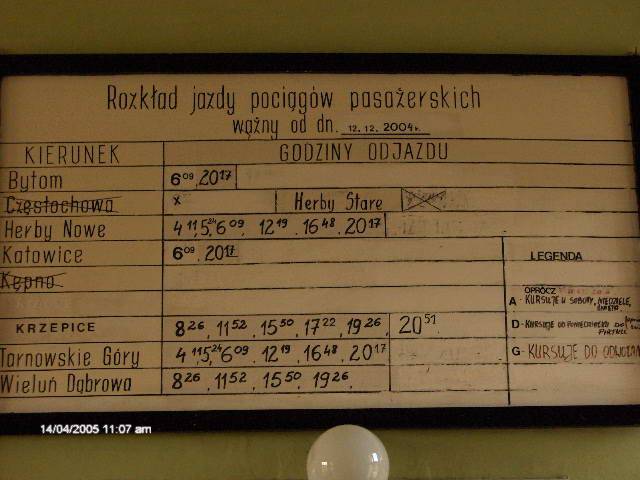 Rozkład jazdy pociągów pasażerskich
ważny od dn. 12.12.2004r.
KIERUNEK GODZINY ODJAZDU
Bytom 6 09, 20 17
Częstochowa x Herby Stare
Herby Nowe 4 11, 5 24, 6 09, 12 19, 16 48, 20 17
Katowice 6 09, 20 17
Kępno
LEGENDA
OPRÓCZ
A - KURSUJE W SOBOTY, NIEDZIELE, ŚWIĘTA
KRZEPICE 8 26, 11 52, 15 50, 17 22, 19 26, 20 51
D - KURSUJE OD PONIEDZIAŁKU DO PIĄTKU
Tarnowskie Góry 4 11, 5 24, 6 09, 12 19, 16 48, 20 17
G - KURSUJE DO ODWOŁAN
Wieluń Dąbrowa 8 26, 11 52, 15 50, 19 26
14/04/2005 11:07 am